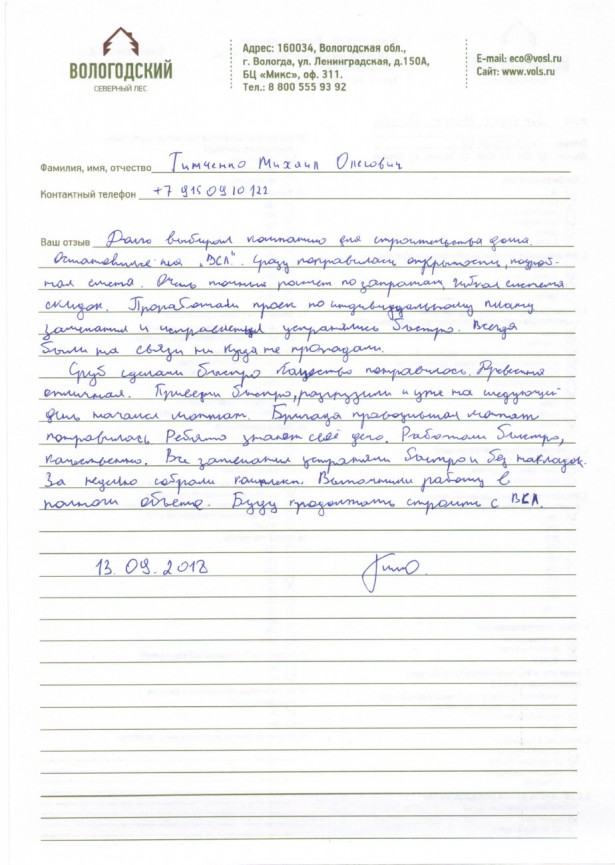 ВОЛОГОДСКИЙ
СЕВЕРНЫЙ ЛЕС
Адрес: 160034, Вологодская обл.,
г. Вологда, ул. Ленинградская, д.150А,
БЦ «Микс», оф. 311.
Тел.: 8 800 555 93 92
E-mail: eco@vosl.ru
Сайт: www.vols.ru
Фамилия, имя, отчество Тимченко Михаил Олегович
Контактный телефон +7 915 09 10 122
Ваш отзыв Долго выбирали компанию для строительства дома.
Остановились на "ВСЛ". Сразу понравилась открытость, подроб-
ная смета. Очень точный расчет по затратам, гибкая система
скидок. Проработали проект по индивидуальному плану
замечания и устранялись быстро. Всегда
были на связи ни куда не пропадали.
Сруб сделали быстро качество понравилось. Древесина
отличная. Привезли быстро, разгрузили и уже на следующий
день начался монтаж. Бригада проводившая монтаж
понравилась. Ребята знают своё дело. Работали быстро,
качественно. Все замечания устраняли быстро и без накладок.
За неделю собрали комплект. Выполнили работу в
полном объеме. Буду продолжать строить с ВСЛ.
13.09.2018